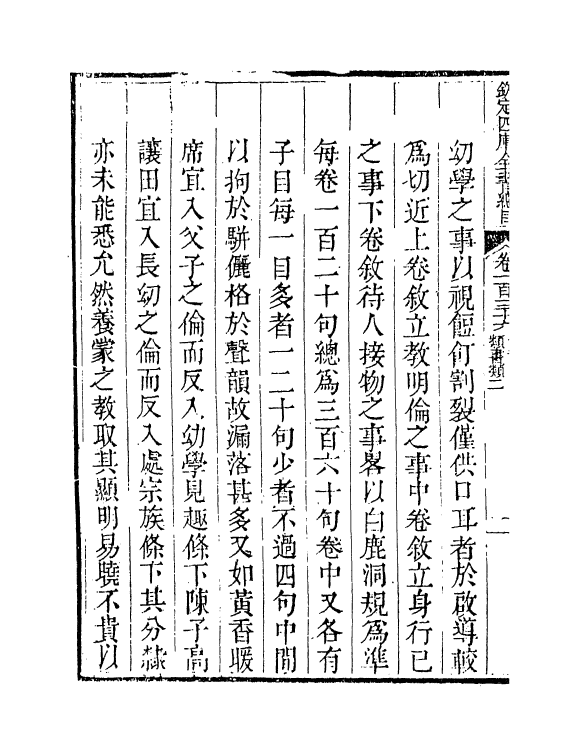 欽定四庫全書總目 卷一百三十六 類書類二
幼學之事以視餖飣割裂僅供口耳者於啟導較
為切近上卷敘立教明倫之事中卷敘立身行己
之事下卷敘待人接物之事畧以白鹿洞規為準
每卷一百二十句總為三百六十句卷中又各有
子目每一目多者一二十句少者不過四句中間
以拘於駢儷格於聲韻故漏落甚多又如黃香暖
席宜入父子之倫而反入幼學見趣條下陳子高
讓田宜入長幼之倫而反入處宗族條下其分隸
亦未能悉允然養蒙之教取其顯明易曉不貴以